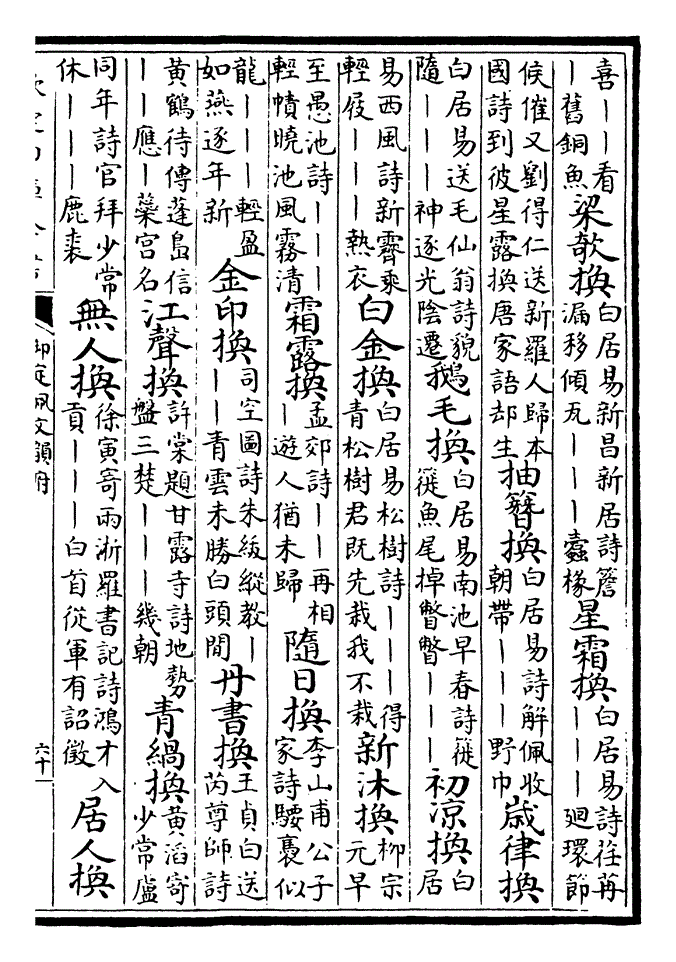 喜||看|舊銅魚梁欹換白居易新昌新居詩簷漏移傾瓦|||蠹椽星霜換白居易詩荏苒|||廻環節
候催又劉得仁送新羅人歸本國詩到彼星露換唐家語却生抽簪換白居易詩解佩收朝帶|||野巾歲律換
白居易送毛仙翁詩貌隨|||神逐光陰遷鵝毛換白居易南池早春詩簁簁魚尾掉瞥瞥|||初涼換白居
易西風詩新霽乘輕屐|||熱衣白金換白居易松樹詩|||得青松樹君既先栽我不栽新沐換柳宗元早
至愚池詩|||輕幘曉池風霧清霜露換孟郊詩||再相|遊人猶未歸隨日換李山甫公子家詩騕褭似
龍|||輕盈如燕逐年新金印換司空圖詩朱紱縱教|||青雲未勝白頭閒丹書換王貞白送芮尊師詩
黃鶴待傳蓬島信||應|蘂宮名江聲換許棠題甘露寺詩地勢盤三楚|||幾朝青緺換黃滔寄少常盧
同年詩官拜少常休|||鹿裘無人換徐寅寄兩浙羅書記詩鴻才入貢|||白首從軍有詔徵居人換
欽定四庫全書 御定佩文韻府 六十